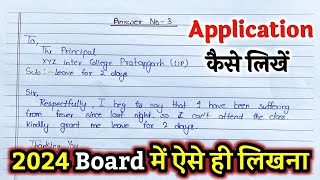 Answer No-3
To,
The Principal
XYZ Inter College Pratapgarh (UP)
Sub:- leave for 2 days
Sir,
Respectfully, I beg to say that I have been suffering
from fever since last night, so I can't attend the class.
kindly grant me leave for 2 days.
Thanking You
Application
कैसे लिखें
2024 Board में ऐसे ही लिखना